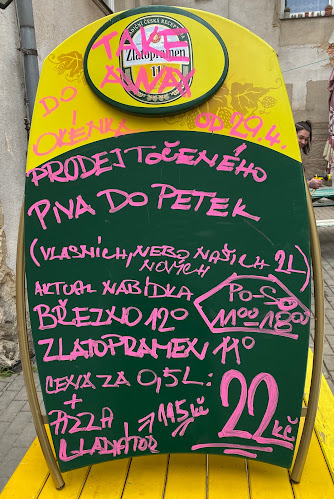 TRADIČNÍ ČESKÁ RECEPTURA
TAKE
Zlatopramen
11
AWAY
DO
OKÉNKA OD 29.4.
PRODEJ TOČENÉHO
PIVA DO PETEK
(VLASNÍCH, NEBO NAŠICH 2L)
NOVÝCH
AKTUAL NABÍDKA
PO-SO
11⁰⁰-18⁰⁰
BŘEZNO 12°
ZLATOPRAMEN 11°
CENA ZA 0,5L:
22 KČ
+
PIZZA
GLADIÁTOR
115 kč